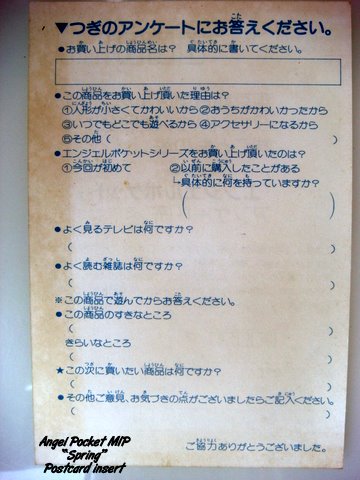 ▼つぎのアンケートにお答えください。
●お買い上げの商品名は？ 具体的に書いてください。
●この商品をお買い上げ頂いた理由は？
①人形が小さくてかわいいから②おうちがかわいかったから
③いつでもどこでも遊べるから ④アクセサリーになるから
⑤その他( )
●エンジェルポケットシリーズをお買い上げ頂いたのは？
①今回が初めて ②以前に購入したことがある
↳具体的に何を持っていますか？
( )
●よく見るテレビは何ですか？
( )
●よく読む雑誌は何ですか？
( )
※この商品で遊んでからお答えください。
●この商品のすきなところ
( )
きらいなところ
( )
★この次に買いたい商品は何ですか？
( )
●その他ご意見、お気づきの点がございましたらご記入ください。
( )
ご協力ありがとうございました。
Angel Pocket MIP
"Spring"
Postcard insert